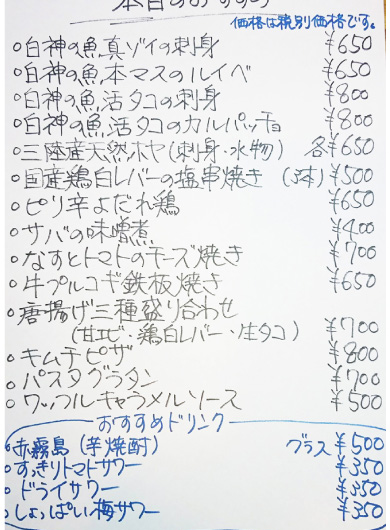 本日のおすすめ
価格は税別価格です。
○白神の魚真ゾイの刺身 ¥650
○白神の魚本マスのルイベ ¥650
○白神の魚活タコの刺身 ¥800
○白神の魚活タコのカルパッチョ ¥800
○三陸産天然ホヤ(刺身・水物) 各¥650
○国産鶏白レバーの塩串焼き (3本)¥500
○ピリ辛よだれ鶏 ¥650
○サバの味噌煮 ¥400
○なすとトマトのチーズ焼き ¥700
○牛プルコギ鉄板焼き ¥650
○唐揚げ三種盛り合わせ
(甘エビ・鶏白レバー・生タコ) ¥700
○キムチピザ ¥800
○パスタグラタン ¥700
○ワッフルキャラメルソース ¥500
おすすめドリンク
○赤霧島(芋焼酎) グラス ¥500
○すっきりトマトサワー ¥350
○ドライサワー ¥350
○しょっぱい梅サワー ¥350